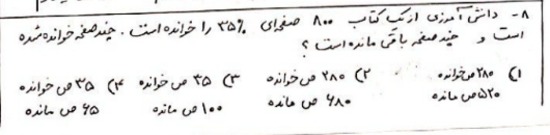 ۸- دانش آموزی از یک کتاب ۸۰۰ صفحه‌ای ۳۵٪ را خوانده است . چند صفحه خوانده شده
است و چند صفحه باقی مانده است ؟
۱) ۲۸۰ ص خوانده ۲) ۲۸۰ ص خوانده ۳) ۳۵ ص خوانده ۴) ۳۵ ص خوانده
۵۲۰ ص مانده ۶۸۰ ص مانده ۱۰۰ ص مانده ۶۵ ص مانده